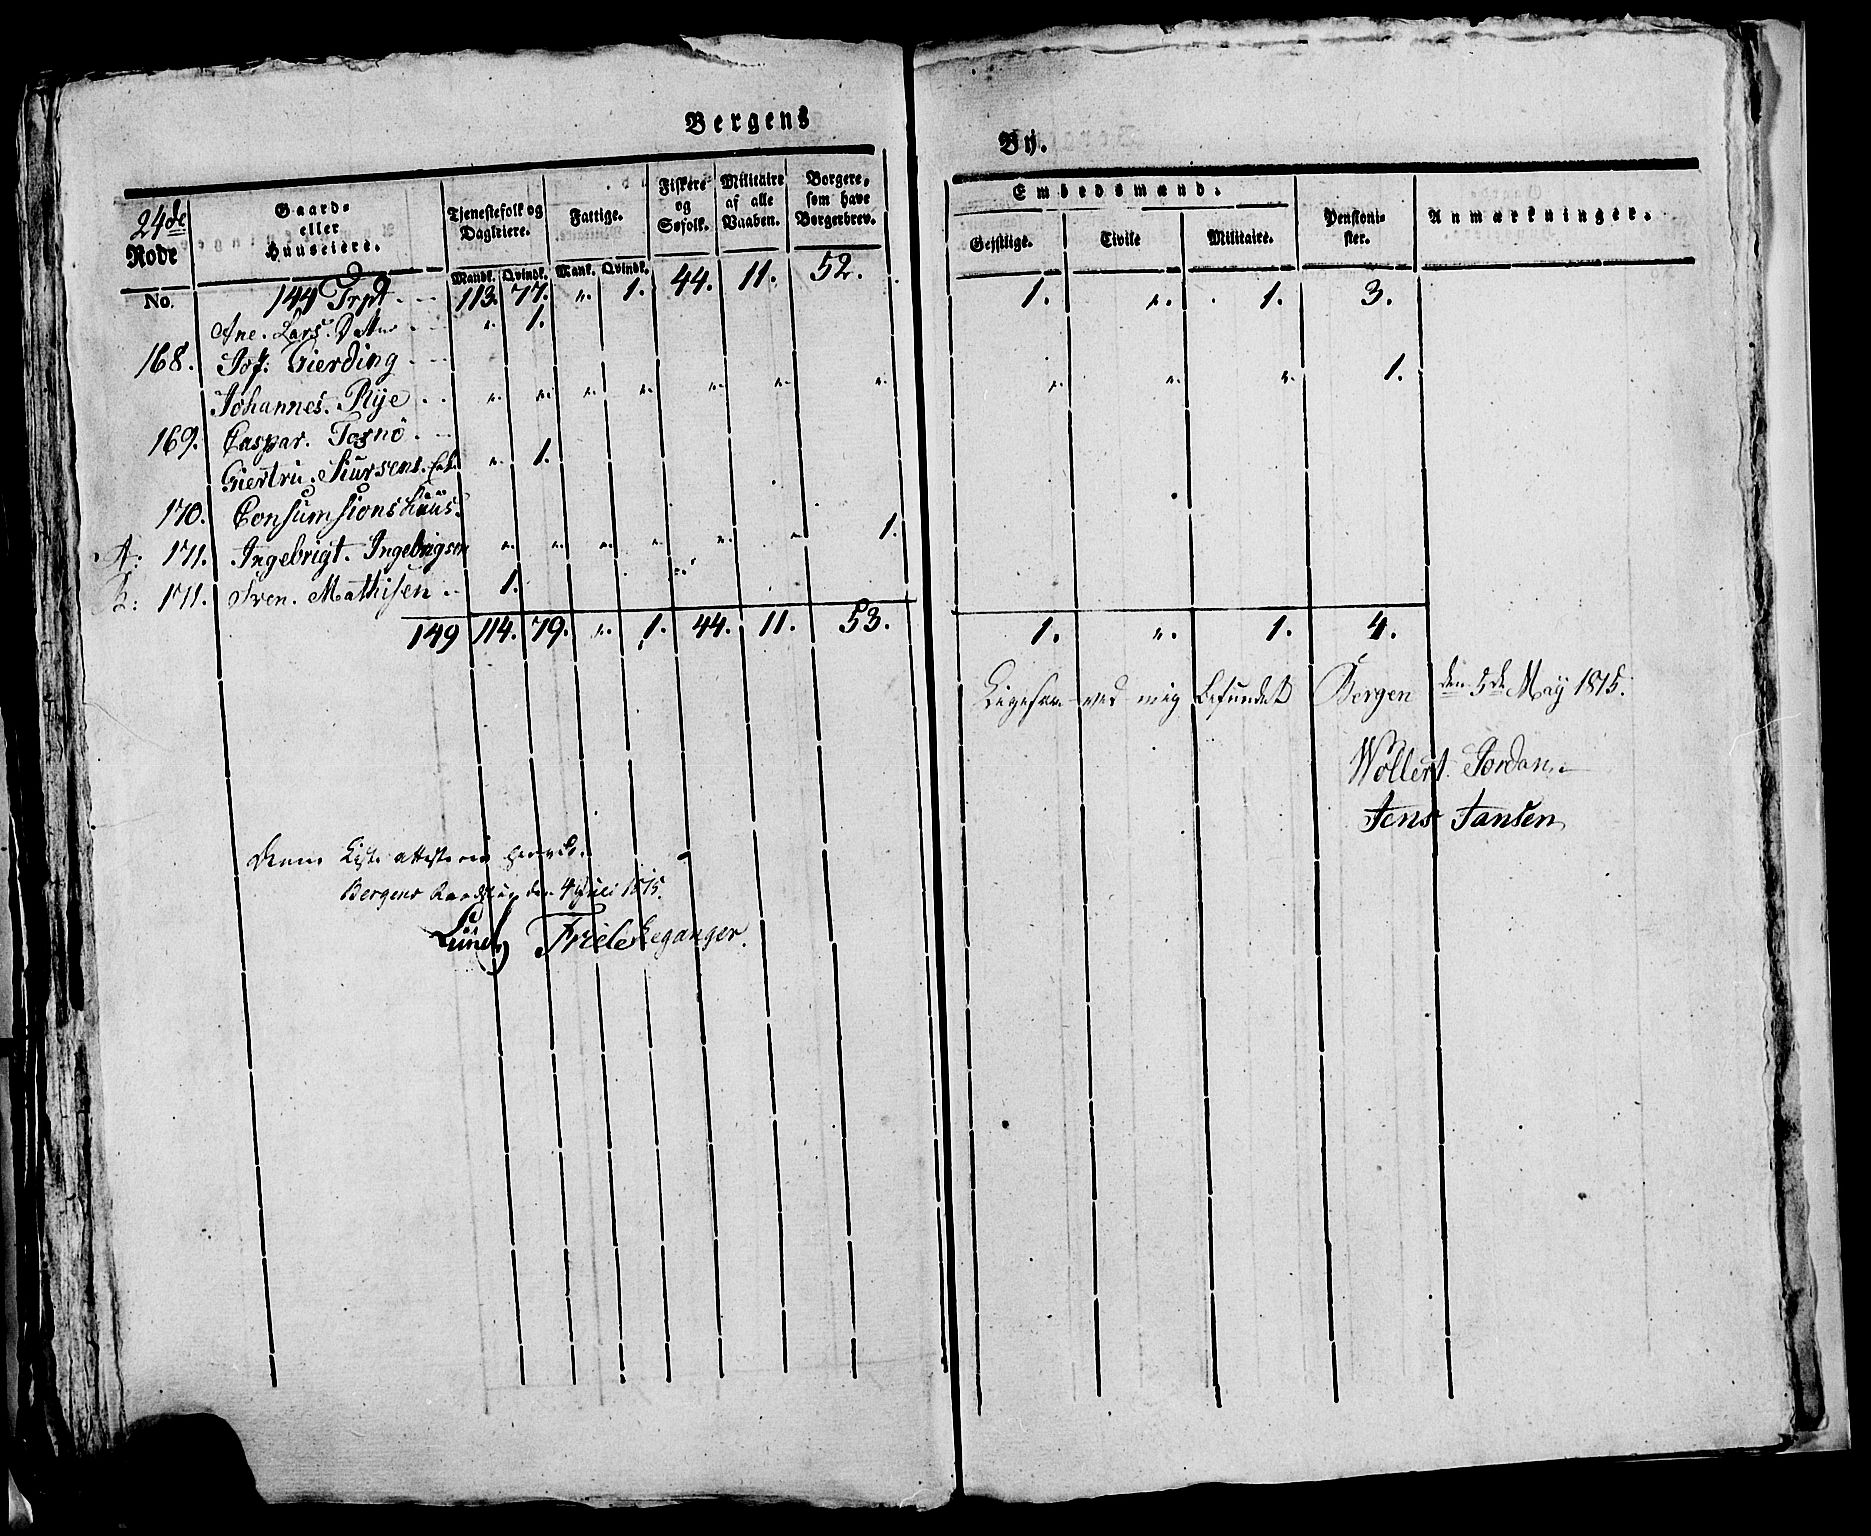 Bergens By.
24de Rode
No.
Gaard- eller Huuseiere.
Tjenestefolk og Dagleiere.
Mandk. Qvindk.
Fattige.
Mank. Qvindk.
Fiskere og Søfolk.
Militaire af alle Vaaben.
Borgere, som have Borgerbrev.
Embedsmænd.
Gejstlige. Civile Militaire.
Pensionister.
Anmærkninger.
144 Trpt. 113. 77. ". 1. 44. 11. 52. 1. ". 1. 3.
Ane. Lars. Datter ". 1.
168. Jos: Gierding
Johannes. Rye ". ". ". ". ". ". ". ". ". ". 1.
169. Caspar. Tornö
Giertru. Siursens. ". 1.
170. Consumsions huus.
A: 171. Ingebrigt. Ingebrigsen ". ". ". ". ". ". 1.
B: 171. Sven. Mathisen 1.
149 114. 79. ". 1. 44. 11. 53. 1. ". 1. 4.
Ligesaa ved mig befundet Bergen den 5de May 1815.
Wollert Jordan
Jens Jansen
Denne Liste attesteres herved.
Bergens Raadstue den 4 Juli 1815.
Lund Friele Leganger.